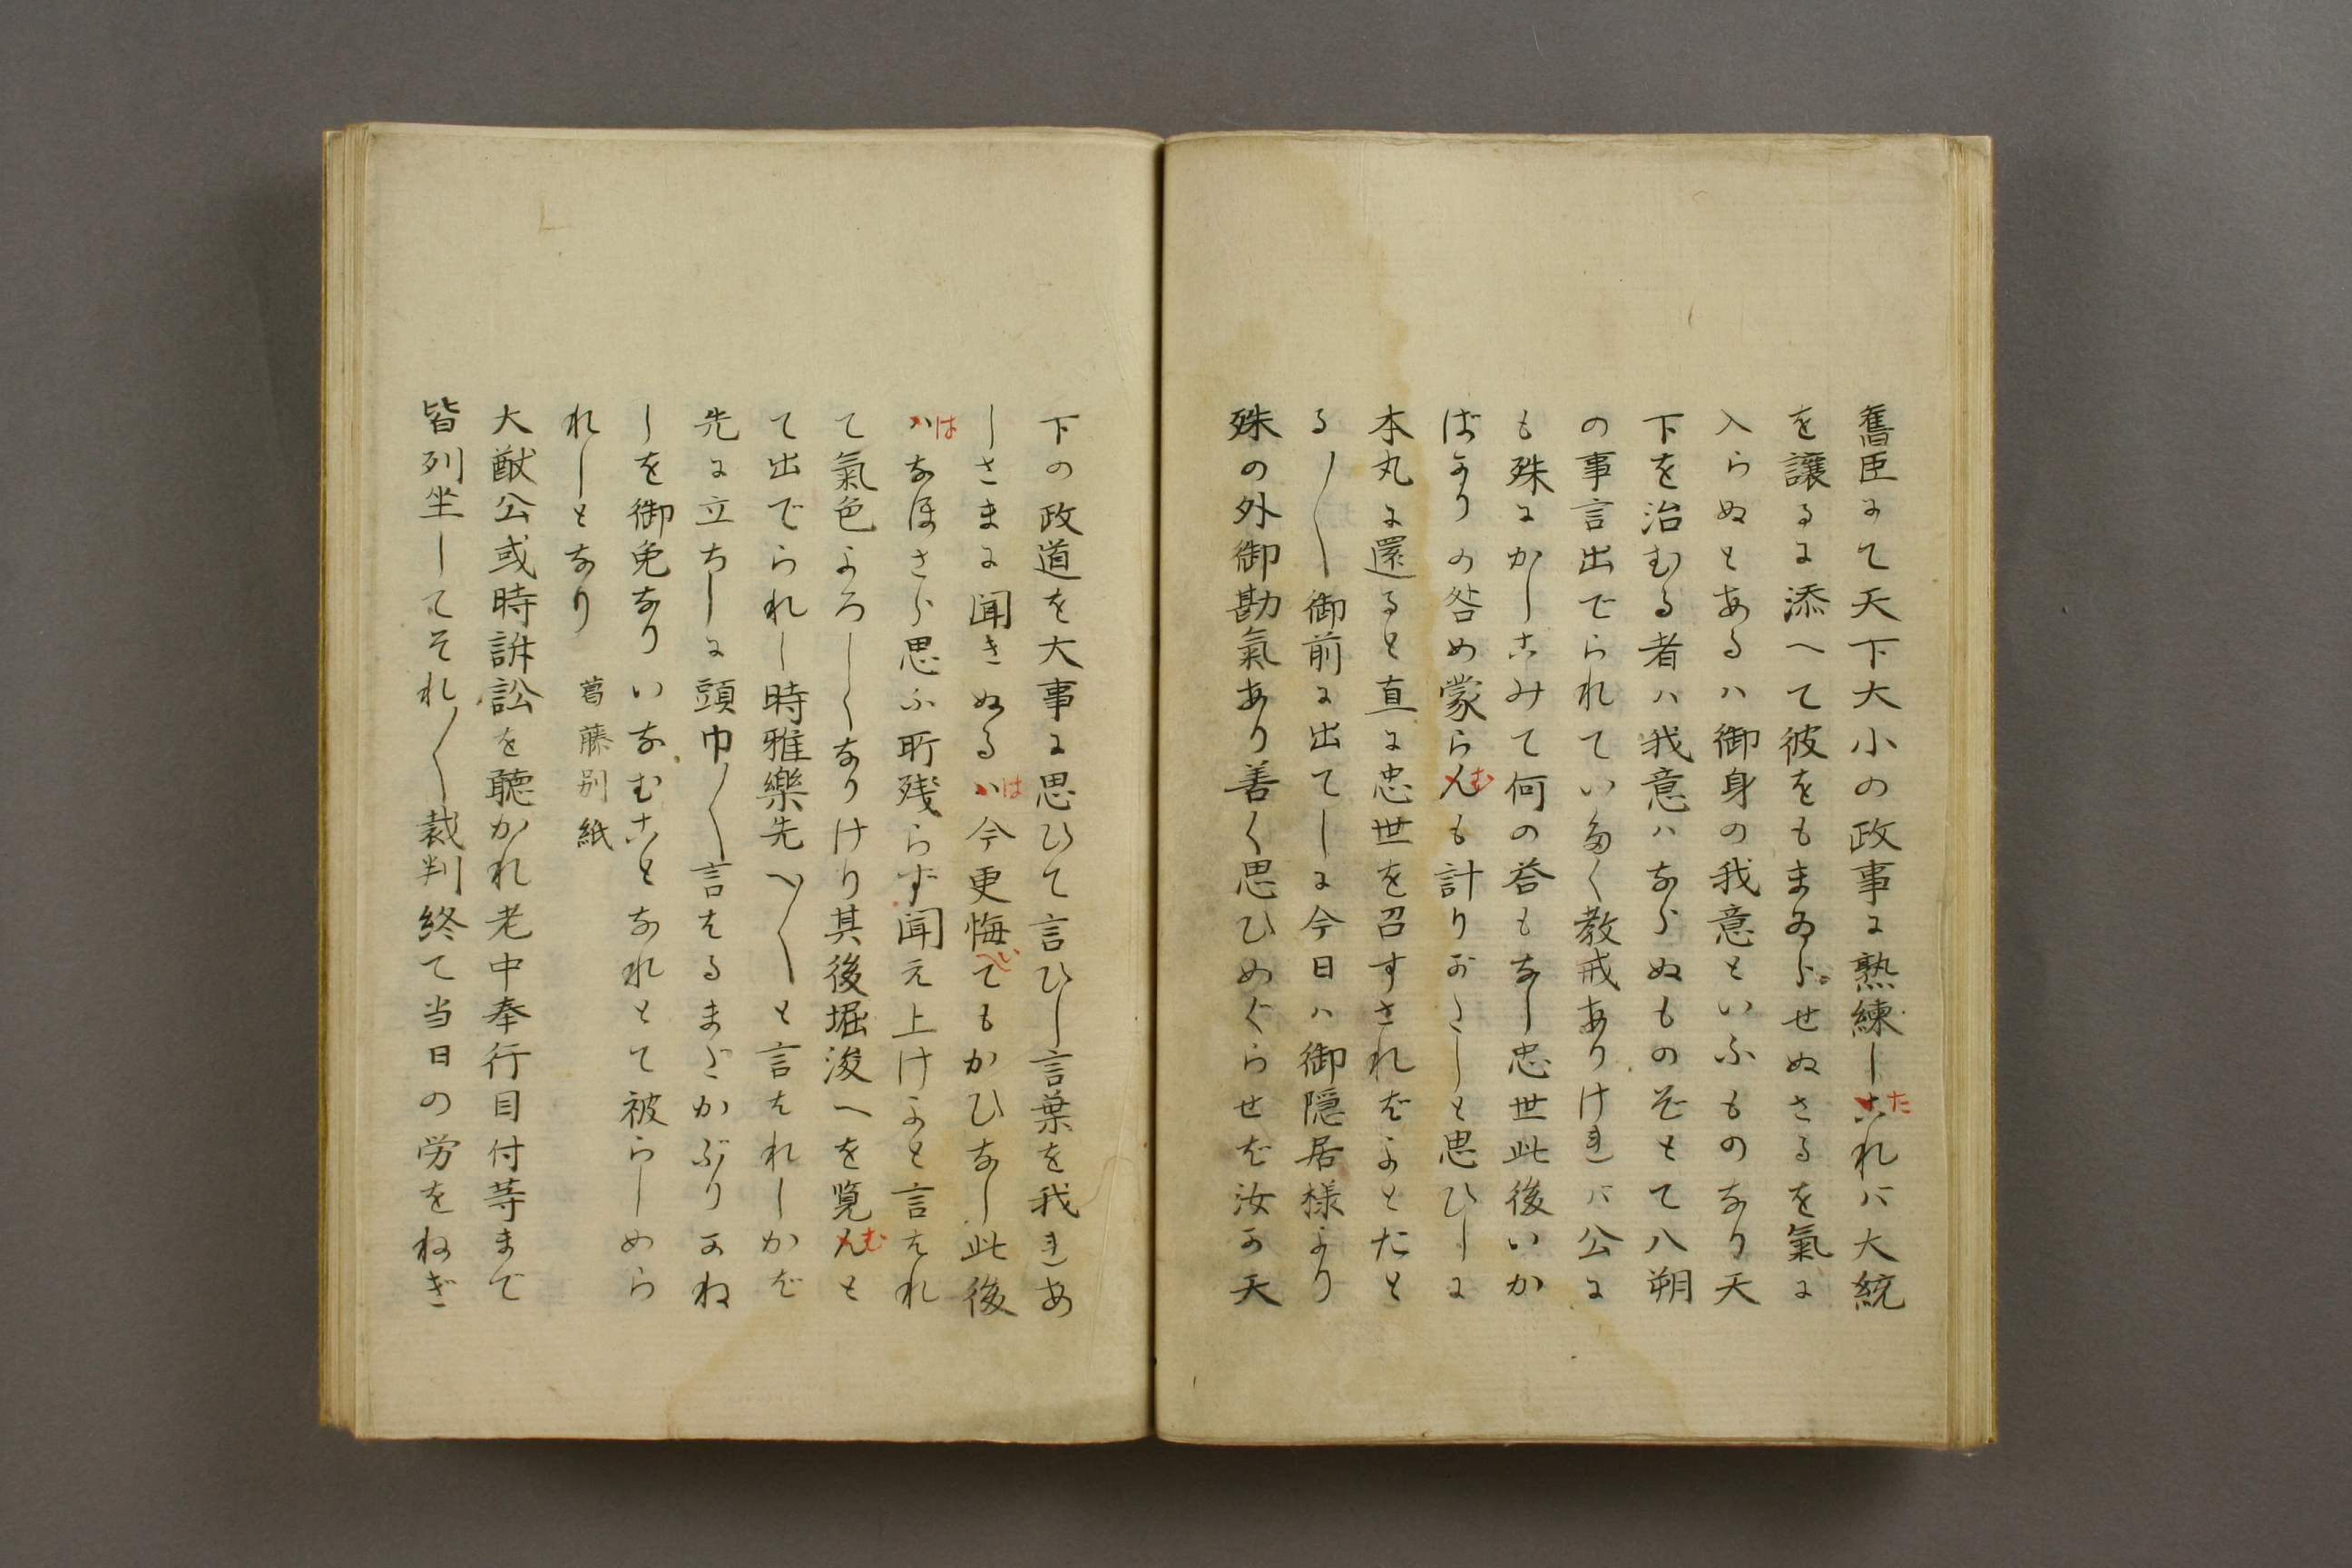 舊臣にて天下大小の政事に熟練しこたれバ大統
を譲るに添へて彼をもまゐらせぬさるを氣に
入らぬとあるハ御身の我意といふものなり天
下を治むる者ハ我意ハならぬものぞとて八朔
の事言出でられていたく教戒ありけれバ公に
も殊にかしこみて何の答もなし忠世此後いか
ばかりの咎め蒙らんむも計りがたしと思ひしに
本丸に還ると直に忠世を召すされどよとたと
る〳〵御前に出てしに今日ハ御隠居様より
殊の外御勘氣あり善く思ひめぐらせど汝が天
下の政道を大事に思ひて言ひし言葉を我きあ
しさまに聞きぬるハは今更悔いてもかひなし此後
ハはなほさら思ふ所残らず聞え上げよと言はれ
て氣色よろしくなりけり其後堀浚へを覧んむと
て出でられし時雅樂先へ〳〵と言はれしかど
先に立ちしに頭巾〳〵言はるまゝかぶりかね
しを御免なりいなむことなれとて被らしめら
れしとなり　葛藤別紙
大猷公或時訴訟を聽かれ老中奉行目付等まで
皆列坐してそれ〳〵裁判終て当日の労をねぎ